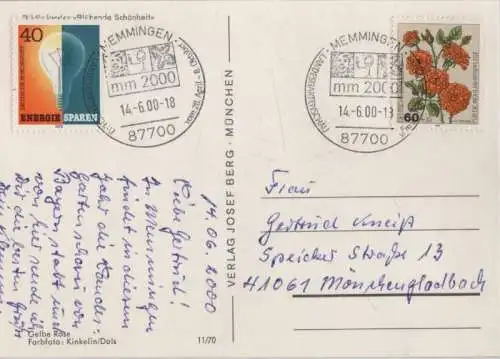 40
DEUTSCHE BUNDESPOST
ENERGIE SPAREN
MEMMINGEN
mm 2000
14.-6.00-18
87700
MEMMINGEN
mm 2000
14.-6.00-18
87700
60
14.06.2000
Liebe Gertrud!
In Memmingen
findet in diesem
Jahr die Landes-
gartenschau von
Bayern statt und
von hier sende ich
Dir die besten Grüße
Gelbe Rose
Farbfoto: Kinkelin/Dols
11/70
VERLAG JOSEF BERG · MÜNCHEN
Frau
Gertrud Kneiß
Speicker Straße 13
41061 Mönchengladbach